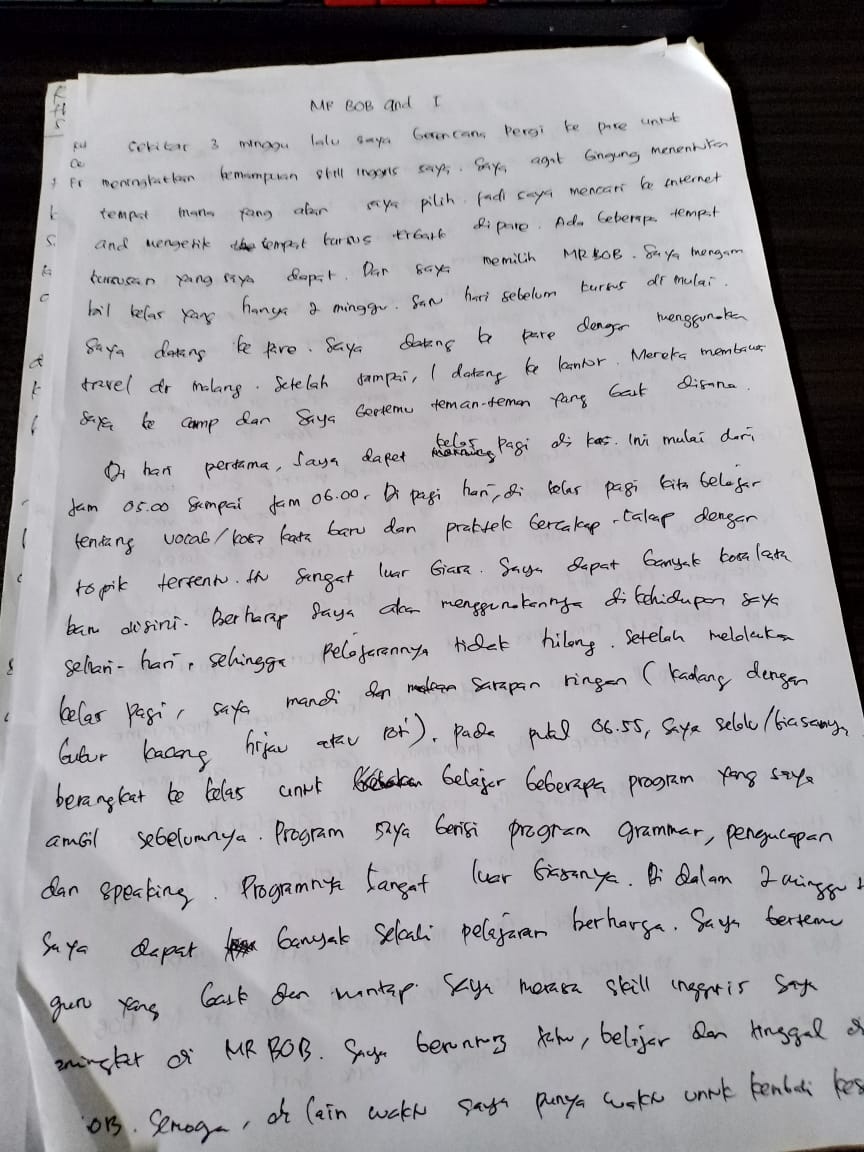 MR BOB and I
Sekitar 3 minggu lalu saya berencana pergi ke pare untuk
meningkatkan kemampuan skill inggris saya. Saya agak bingung menentukan
tempat mana yang akan saya pilih. Jadi saya mencari ke internet
and mengetik tempat kursus terbaik di pare. Ada beberapa tempat
kursusan yang saya dapat. Dan saya memilih MR BOB. Saya mengam
bil kelas yang hanya 2 minggu. hari sebelum kursus di mulai.
Saya datang ke pare. Saya datang ke pare dengan menggunakan
travel dr malang. Setelah sampai, I datang ke kantor. Mereka membawa
saya ke camp dan saya bertemu teman-teman yang baik disana.
Di hari pertama, saya dapet kelas pagi di kos. Ini mulai dari
jam 05.00 sampai jam 06.00. Di pagi hari, di kelas pagi kita belajar
tentang vocab/kosa kata baru dan praktek bercakap-cakap dengan
topik tertentu. Itu sangat luar biasa. Saya dapat banyak kosa kata
baru disini. Berharap saya akan menggunakannya di kehidupan saya
sehari-hari, sehingga pelajarannya tidak hilang. Setelah melakukan
kelas pagi, saya mandi dan sarapan ringan (kadang dengan
bubur kacang hijau atau roti). Pada pukul 06.55, saya selalu/biasanya
berangkat ke kelas untuk belajar beberapa program yang saya
ambil sebelumnya. Program saya berisi program grammar, pengucapan
dan speaking. Programnya sangat luar biasanya. Di dalam 2 minggu
saya dapat banyak sekali pelajaran berharga. Saya bertemu
guru yang baik dan mantap. Saya merasa skill inggris saya
meningkat di MR BOB. Saya beruntung tahu, belajar dan tinggal di
OB. Semoga, di lain waktu saya punya waktu untuk kembali kes